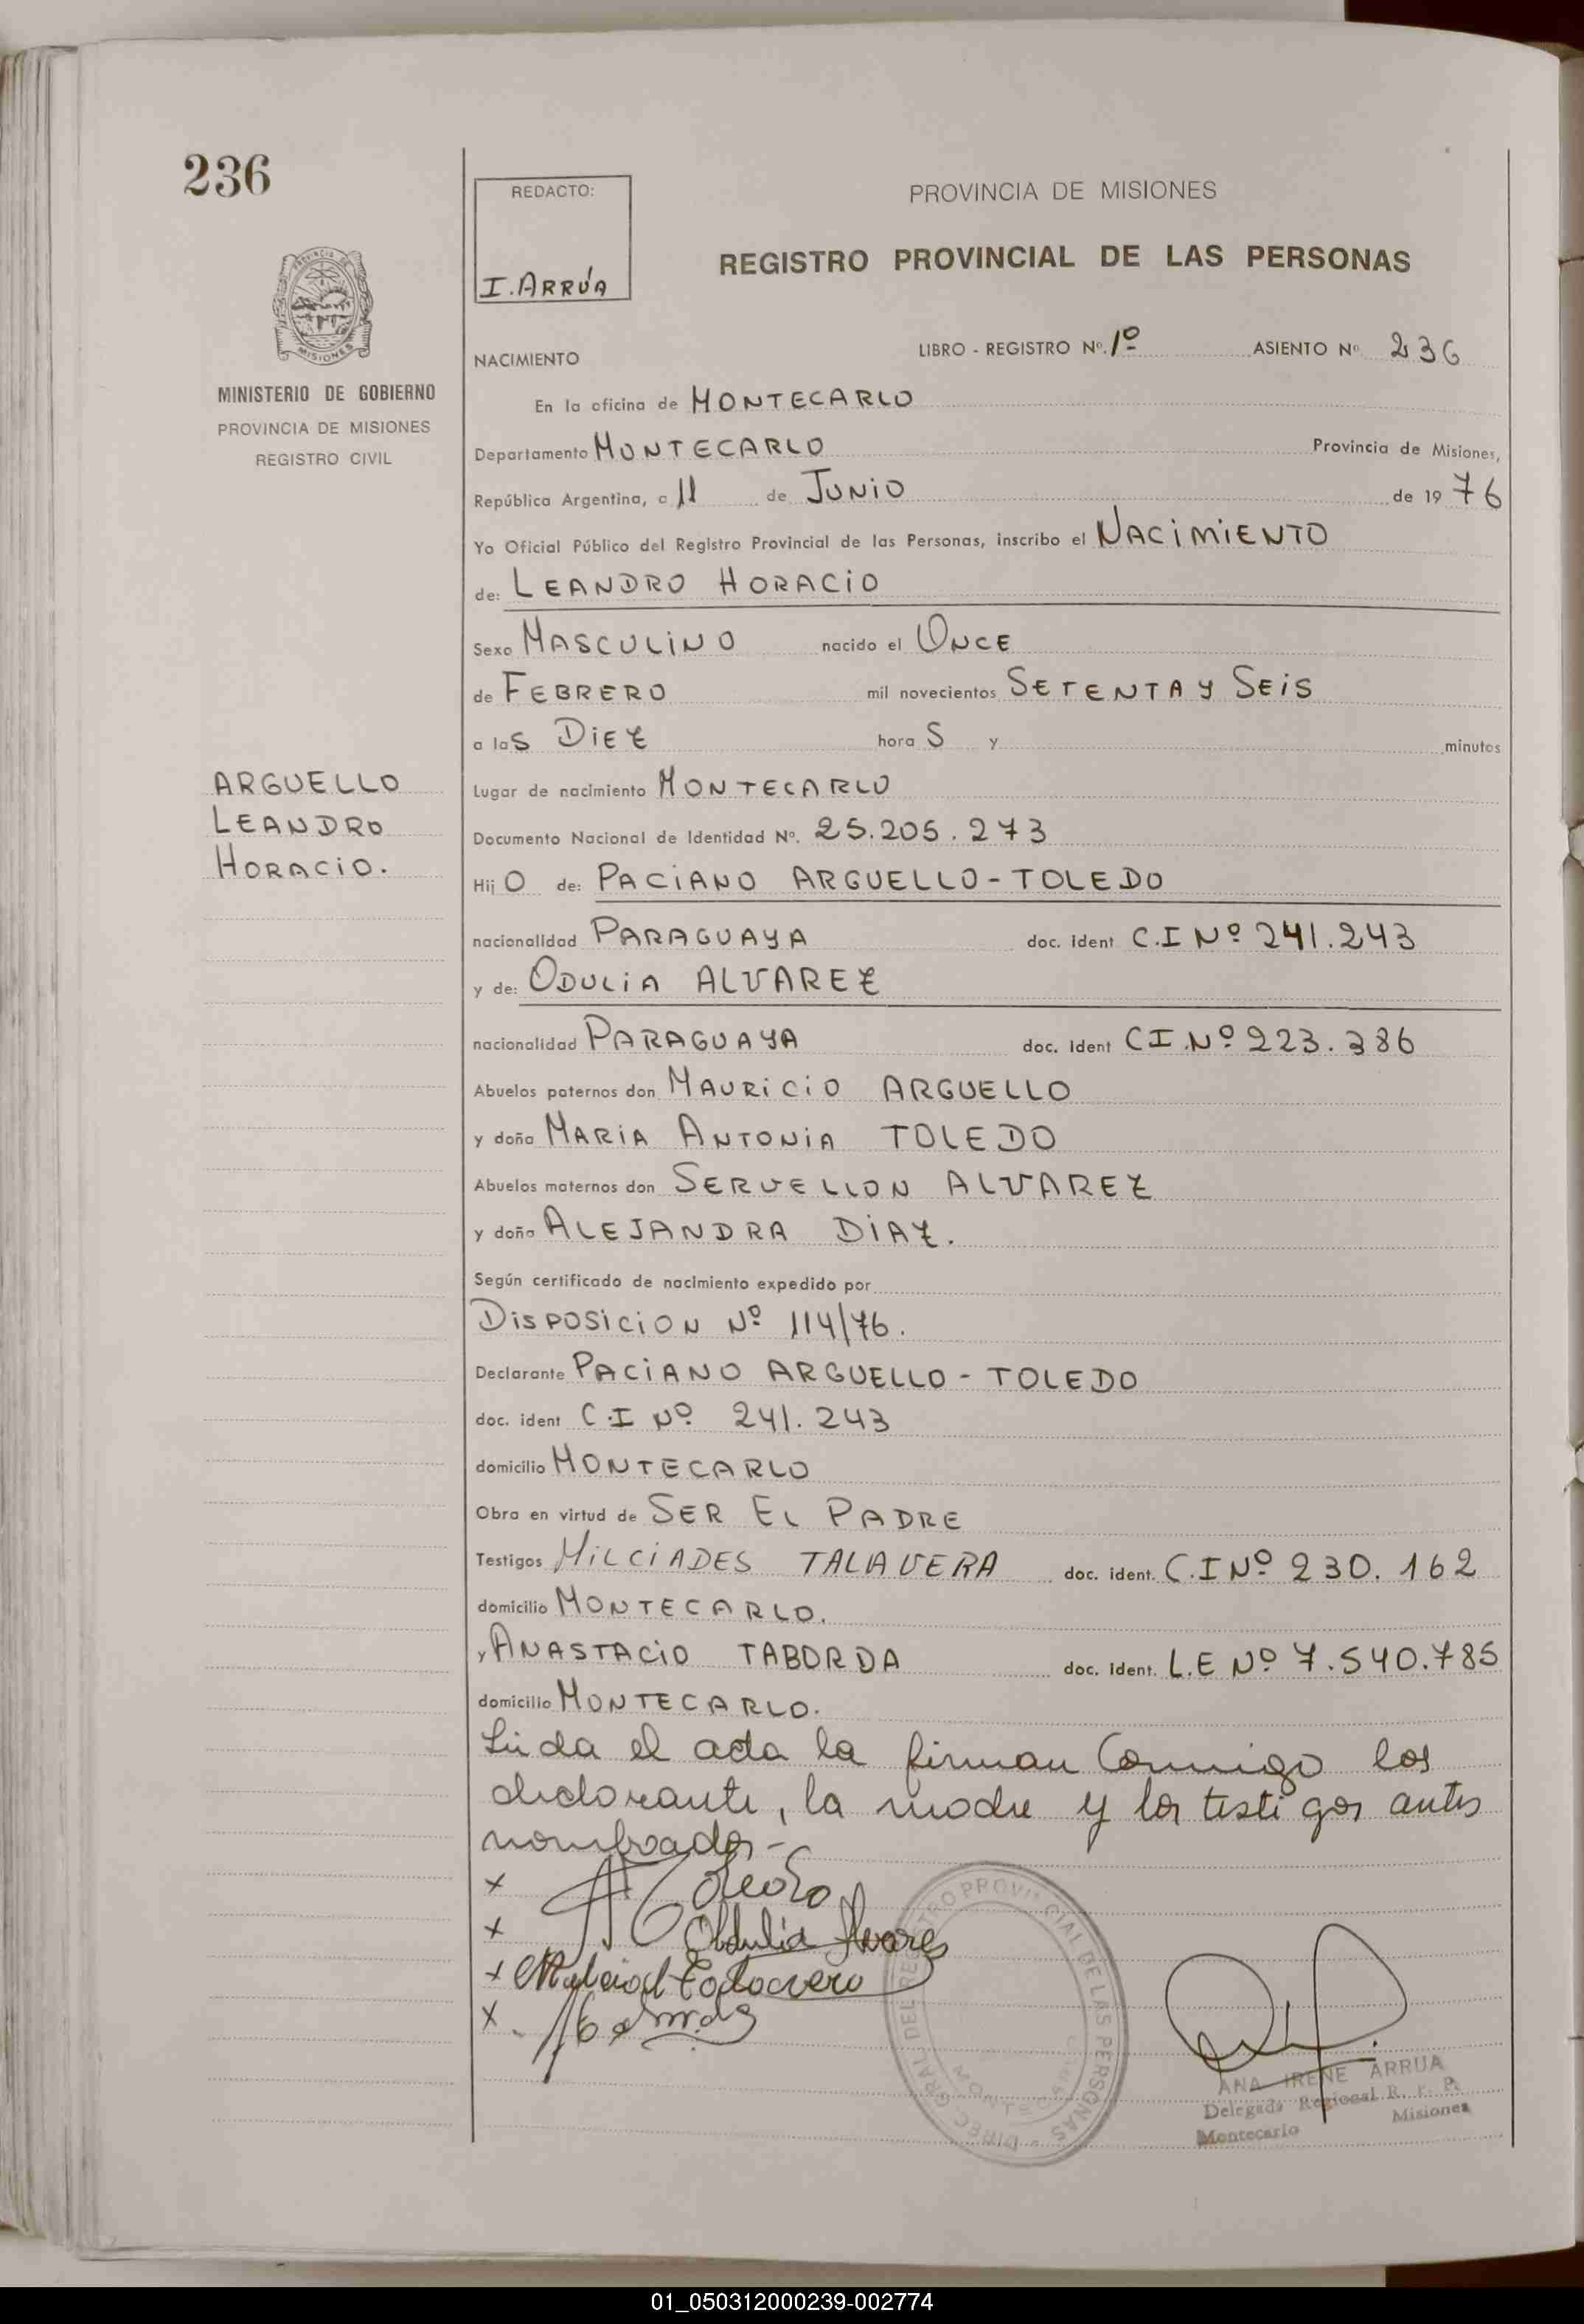 236
REDACTO:
I. ARRÚA
PROVINCIA DE MISIONES
REGISTRO PROVINCIAL DE LAS PERSONAS
PROVINCIA DE
MISIONES
MINISTERIO DE GOBIERNO
PROVINCIA DE MISIONES
REGISTRO CIVIL
NACIMIENTO
LIBRO - REGISTRO Nº. 1º ASIENTO Nº 236
En la oficina de MONTECARLO
Departamento MONTECARLO Provincia de Misiones,
República Argentina, a 11 de JUNIO de 19 76
Yo Oficial Público del Registro Provincial de las Personas, inscribo el NACIMIENTO
de: LEANDRO HORACIO
Sexo MASCULINO nacido el ONCE
de FEBRERO mil novecientos SETENTA Y SEIS
a las DIEZ hora S y minutos
ARGUELLO
LEANDRO
HORACIO.
Lugar de nacimiento MONTECARLO
Documento Nacional de Identidad Nº. 25.205.273
Hij O de: PACIANO ARGUELLO-TOLEDO
nacionalidad PARAGUAYA doc. ident C.I Nº 241.243
y de: ODULIA ALVAREZ
nacionalidad PARAGUAYA doc. ident CI.Nº 223.386
Abuelos paternos don MAURICIO ARGUELLO
y doña MARIA ANTONIA TOLEDO
Abuelos maternos don SERVELLON ALVAREZ
y doña ALEJANDRA DIAZ.
Según certificado de nacimiento expedido por
DISPOSICION Nº 114/76.
Declarante PACIANO ARGUELLO - TOLEDO
doc. ident C.I Nº 241.243
domicilio MONTECARLO
Obra en virtud de SER EL PADRE
Testigos MILCIADES TALAVERA doc. ident. C.I Nº 230.162
domicilio MONTECARLO.
y ANASTACIO TABORDA doc. ident. L.E Nº 7.540.785
domicilio MONTECARLO.
Leida el acta la firman Conmigo los
declarante, la madre y los testigos antes
nombrados-
x
x Obdulia Alvares
x
x
DIREC. GRAL. DEL REGISTRO PROVINCIAL DE LAS PERSONAS
MONTECARLO
ANA IRENE ARRUA
Delegada Regional R. P. P.
Montecarlo Misiones
01_050312000239-002774